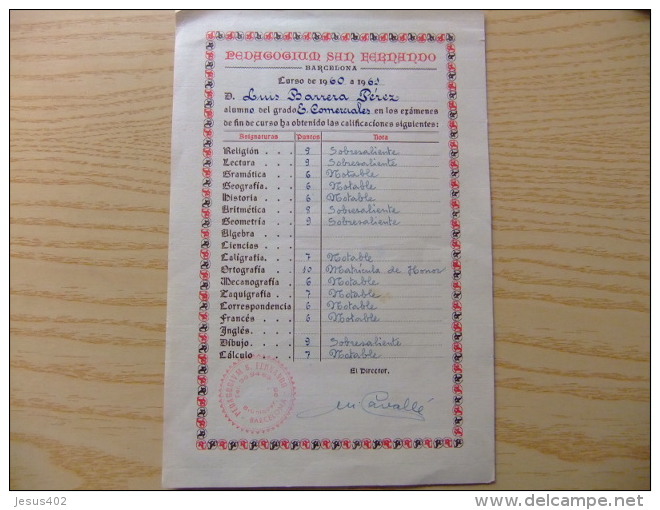 PEDAGOGIUM SAN FERNANDO
BARCELONA
Curso de 1960 a 1961
D. Luis Barrera Pérez
alumno del grado E. Comerciales en los exámenes
de fin de curso ha obtenido las calificaciones siguientes:
Asignaturas Puntos Nota
Religión . . . 9 Sobresaliente
Lectura . . . 9 Sobresaliente
Gramática . . 6 Notable
Geografía . . . 6 Notable
Historia . . . 6 Notable
Aritmética . . 8 Sobresaliente
Geometría . . 9 Sobresaliente
Algebra . . .
Ciencias . . .
Caligrafía . . . 7 Notable
Ortografía . . 10 Matrícula de Honor
Mecanografía . 6 Notable
Taquigrafía . . 7 Notable
Correspondencia 6 Notable
Francés . . . 6 Notable
Inglés . . . .
Dibujo . . . . 9 Sobresaliente
Cálculo . . . 7 Notable
El Director,
M. Cavallé
PEDAGOGIUM S. FERNANDO
BARCELONA
Jesus402
www.delcampe.net